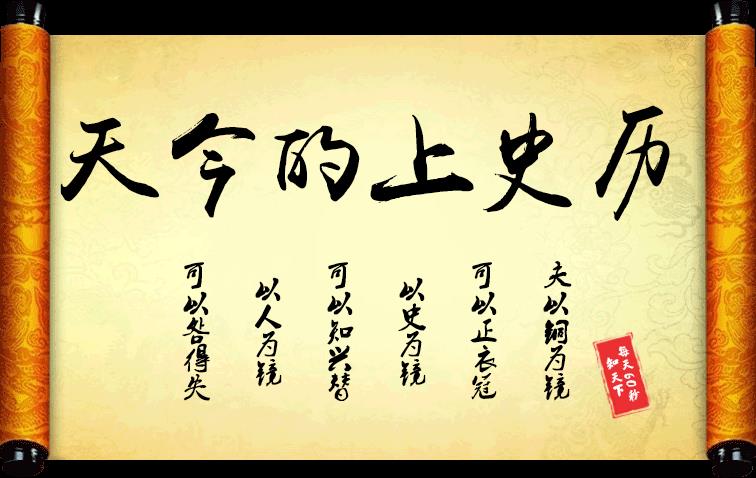 历史上的今天
夫以铜为镜
可以正衣冠
以史为镜
可以知兴替
以人为镜
可以咎得失
每天60秒
知天下